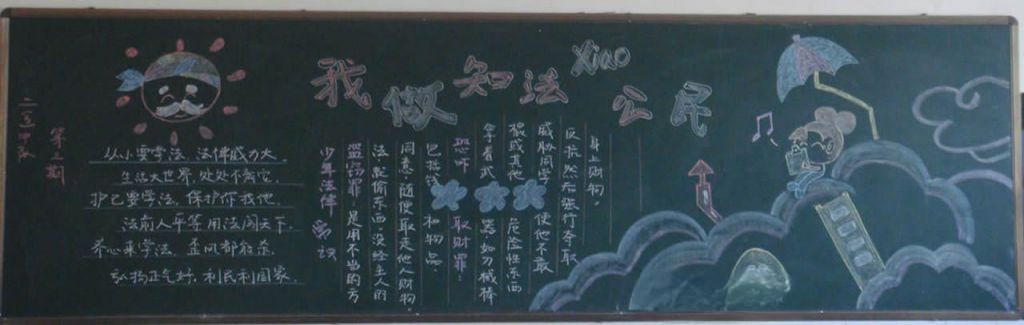 我做知法xiao公民
第二期
从小要学法,法律威力大。
生活大世界,处处不离它。
护已要学法,保护你我他。
法前人平等,用法闯天下。
齐心来学法,歪风都能杀。
弘扬正气好,利民利国家。
少年法律常识
盗窃罪 是用不当的方
法就偷东西,没经主人的
同意,随便取走他人财物
包括钱和物品。
恐吓取财罪:
拿着武器如刀械棒
棍或其他危险性东西
威胁同学,使他不敢
反抗然后强行夺取
身上财物。